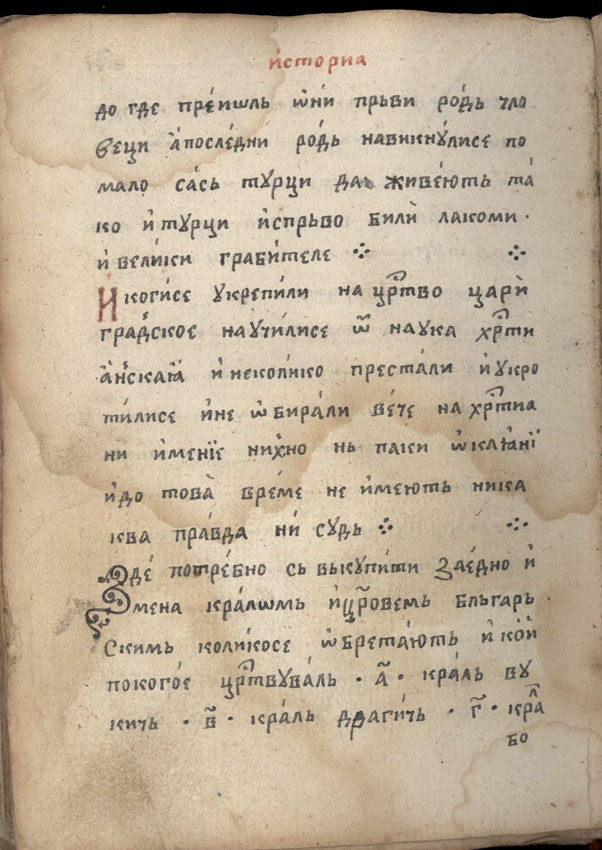 и҆сторіа
до где преи҆шль ѡ҆ни прьви родь чло
веци а҆последни родь навикнꙋлисе по
мало сась тꙋрци да живеють та
ко и҆тꙋрци и҆спрьво били лакоми ·
и҆ велики грабителе ⁘ ⁘
И когисе ꙋкрепили на цр҃тво цари
градское наꙋчилисе ѿ наꙋка хр҃ти
а҆нскаѧ и҆неколико престали и҆ꙋкро
тилисе и҆не ѡ҆бирали вече на хр҃тиа
ни и҆мениїе нихно нь паки
и҆до това време не и҆меють ника
ква правда ни сꙋдь ⁘ ⁘
Зде потребно сь вькꙋпити заедно и҆
мена кралѡмь и҆цр҃овемь бльгарь
скимь коликосе ѡ҆бретають и҆ кои
покогое цр҃твꙋваль · а҃ · краль вꙋ
кичь · в҃ · краль драгичь · г҃ · кра́л
бо